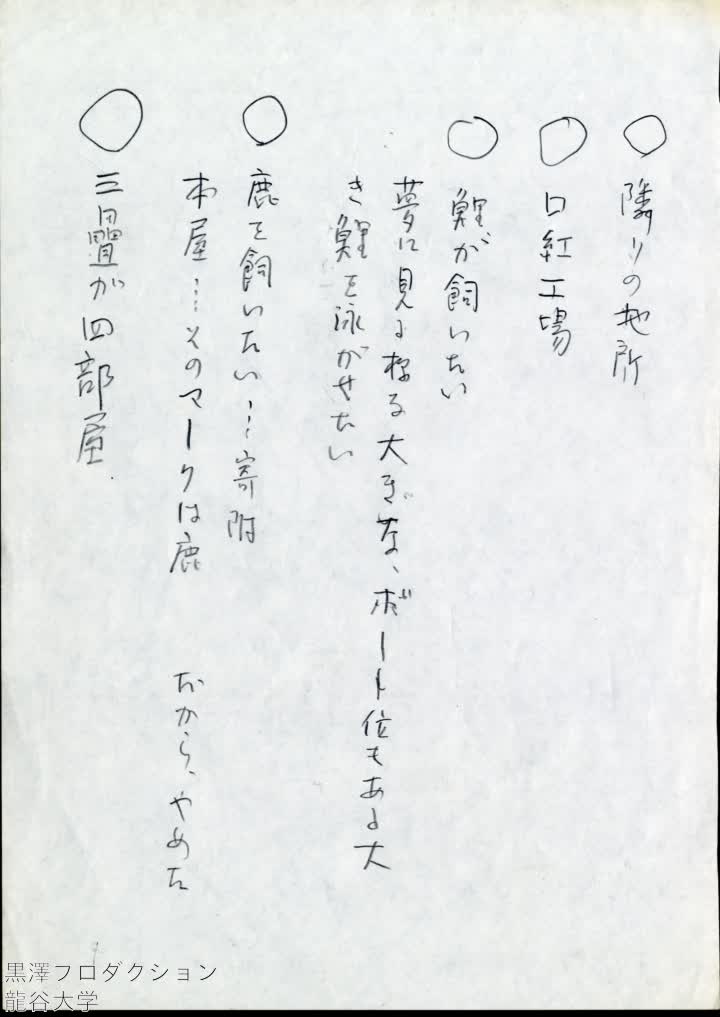 ○ 隣りの地所
○ 口紅工場
○ 鯉が飼いたい
夢に見る様な大きな、ボート位もある大
き鯉を泳がせたい
○ 鹿を飼いたい…寄附
本屋…そのマークは鹿 だから、やめた
○ 三畳が四部屋
黒澤プロダクション
龍谷大学